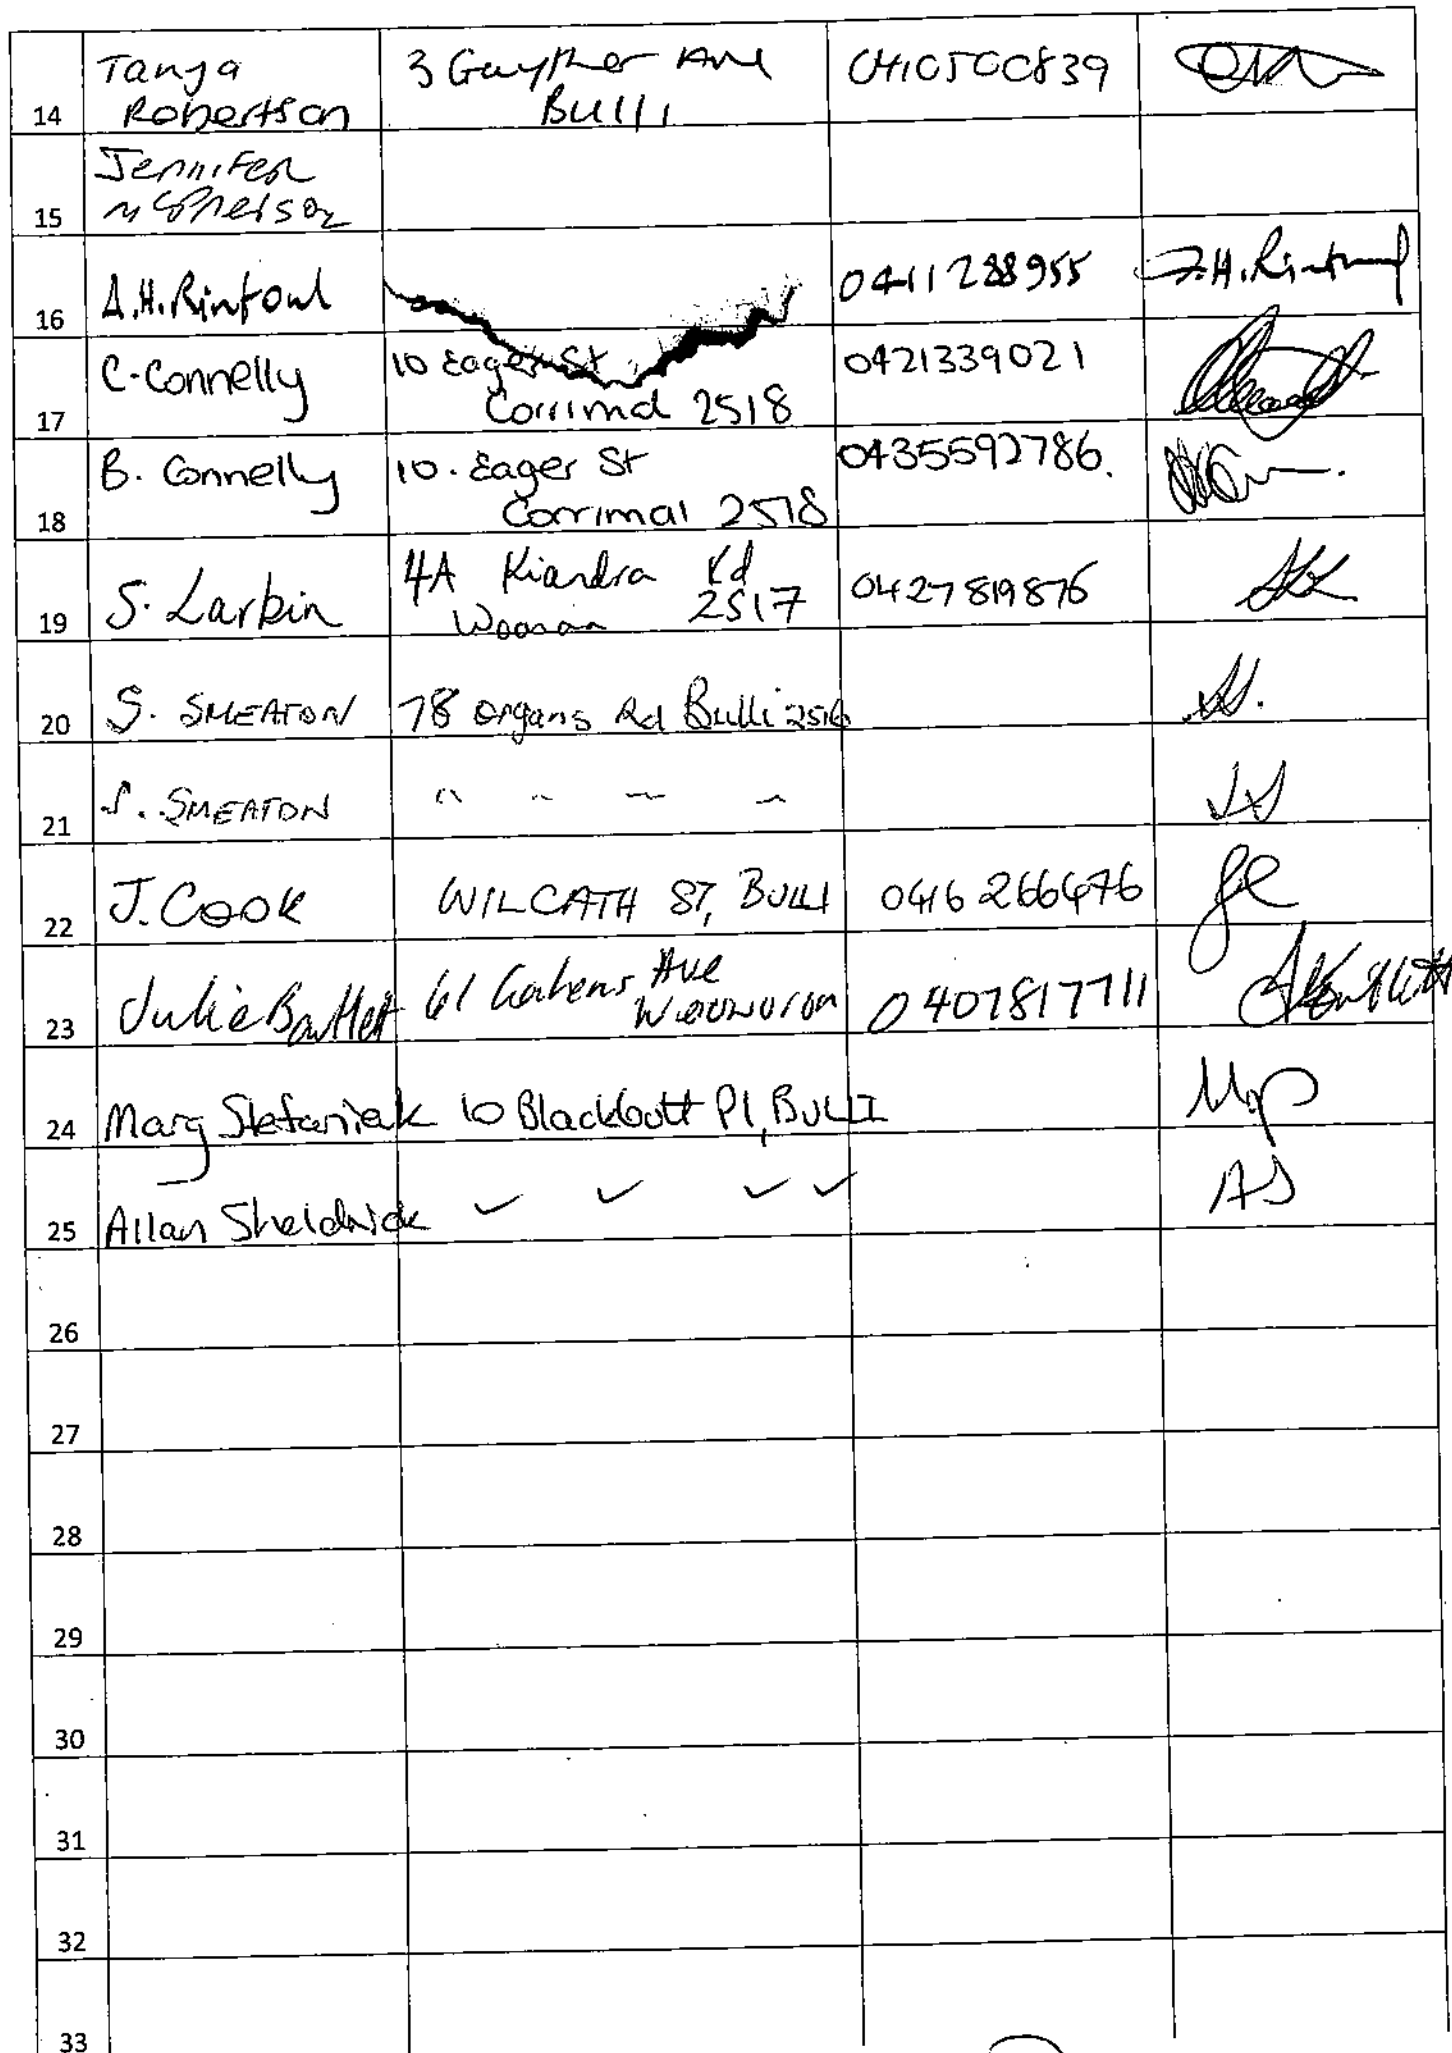 14 Tanya Robertson 3 Gayther Ave Bulli 0410500839
15 Jennifer McPherson
16 A.H.Rintoul 0411288955 A.H.Rintoul
17 C. Connelly 10 Eager St Corrimal 2518 0421339021
18 B. Connelly 10. Eager St Corrimal 2518 0435592786.
19 S. Larbin 4A Kiandra Rd 2517 0427819876
20 S. SMEATON 78 Organs Rd Bulli 2516
21 S. SMEATON " " " "
22 J. Cook WILCATH ST, BULLI 0416 266476
23 Julie Bartlett 61 Ave 0407817711
24 Marg Stefaniak 10 Blackbutt Pl, BULLI
25 Allan Sheldrick ✓ ✓ ✓ ✓ AS
26
27
28
29
30
31
32
33